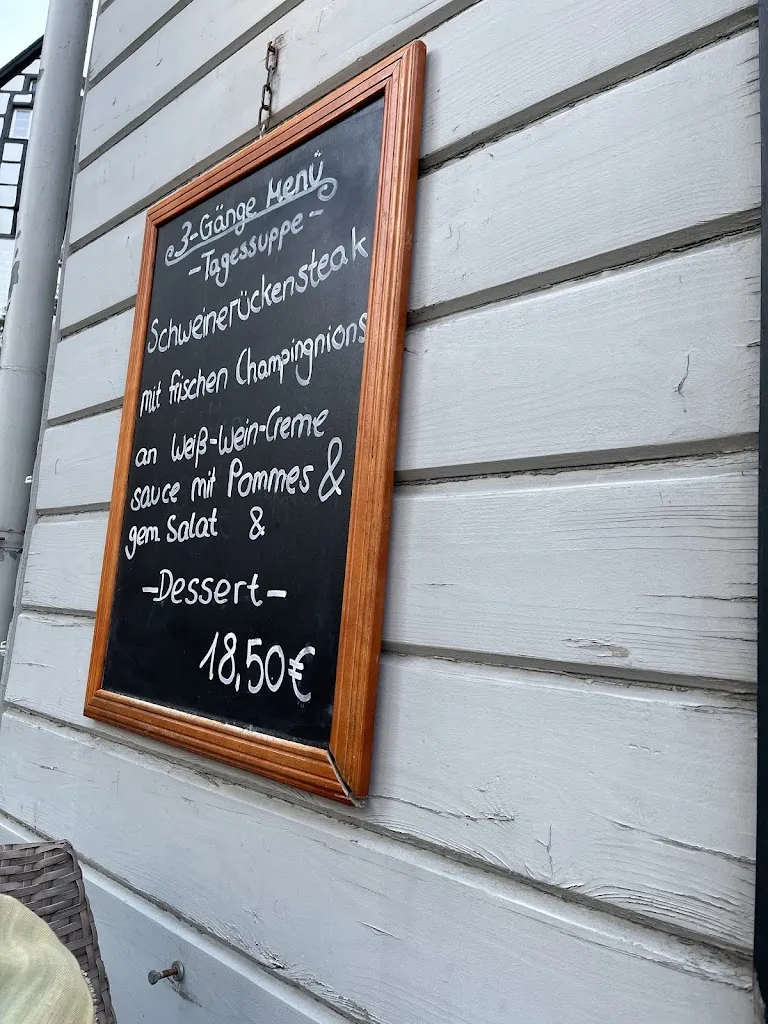 3-Gänge Menü
-Tagessuppe-
Schweinerückensteak
mit frischen Champingnions
an Weiß-Wein-Creme
sauce mit Pommes &
gem. Salat &
-Dessert-
18,50€